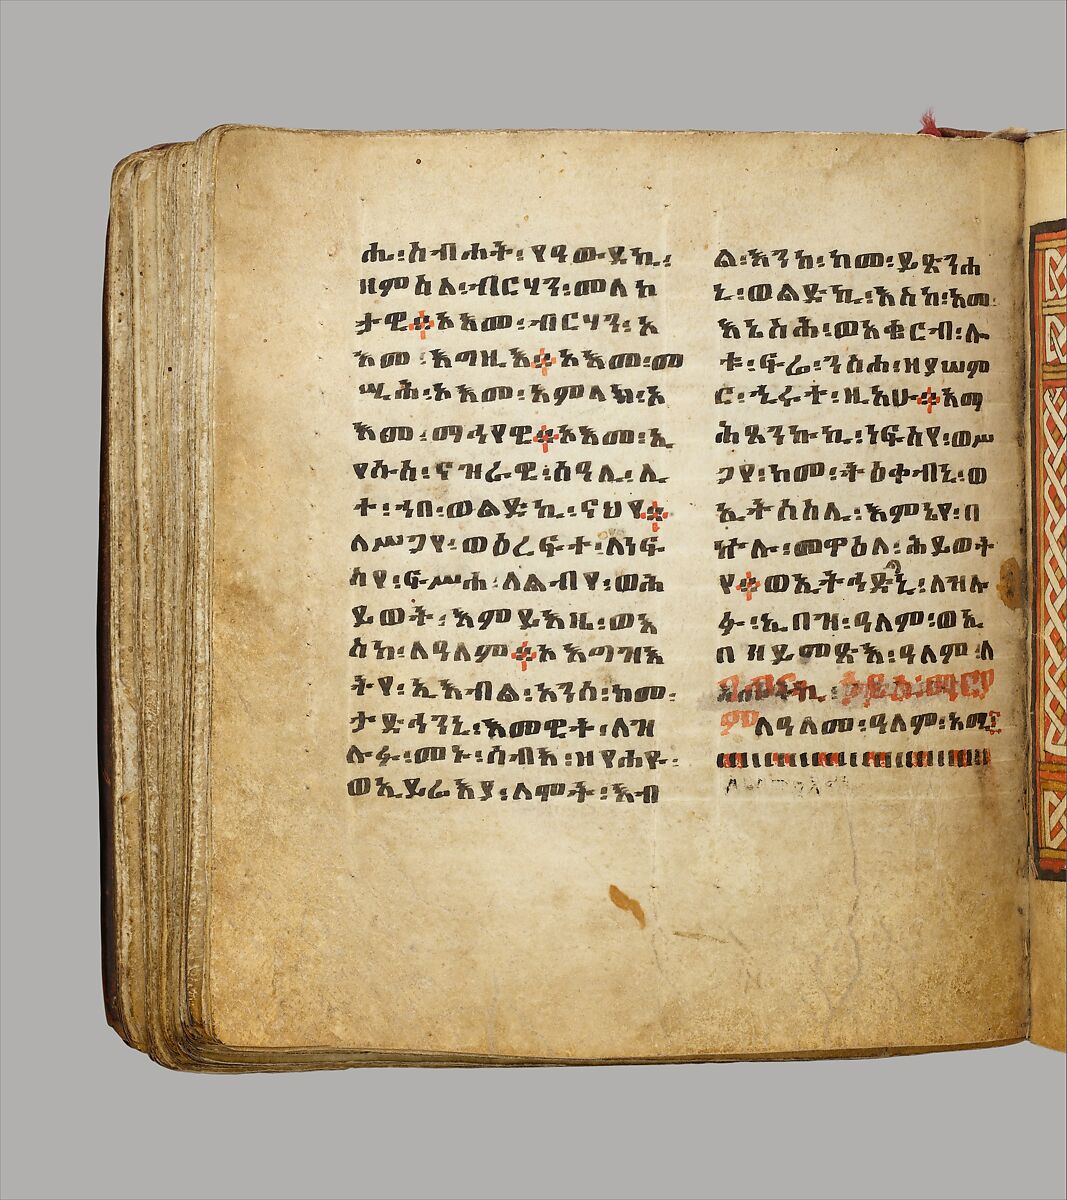 ሒ፡ስብሐት፡የዓውይኪ፡
ዘምስለ፡ብርሃን፡መለኮ
ታዊ፨ኦእመ፡ብርሃን፡እ
እመ፡እግዚእ፨ኦእመ፡መ
ሢሕ፡ኦእመ፡አምላክ፡እ
እመ፡ማኅየዊ፨ኦእመ፡ኢ
የሱስ፡ናዝራዊ፡ሰዓሊ፡ሊ
ተ፡ኀበ፡ወልድኪ፡ናህየ፨
ለሥጋየ፡ወዕረፍተ፡ለነፍ
ስየ፡ፍሥሐ፡ለልብየ፡ወሕ
ይወት፡እምይእዜ፡ወእ
ስከ፡ለዓለም፨ኦእግዝእ
ትየ፡ኢእብል፡አንሰ፡ከመ፡
ታድኅንኒ፡እመዊተ፡ለዝ
ሉፉ፡መኑ፡ሰብእ፡ዘየሐዩ፡
ወኢይሬእያ፡ለሞት፡እብ
ል፡እንከ፡ከመ፡ይጽንሐ
ኒ፡ወልድኪ፡እስከ፡አመ፡
እኔስሕ፡ወአቄርብ፡ሎ
ቱ፡ፍሬ፡ንስሐ፡ዘያሠም
ር፡ኂሩተ፡ዚአሁ፨እማ
ሕፀንኩኪ፡ነፍስየ፡ወሥ
ጋየ፡ከመ፡ትዕቀብኒ፡ወ
ኢትሰስሊ፡እምኔየ፡በ
ኵሉ፡መዋዕለ፡ሕይወት
የ፨ወኢትኅድግኒ፡ለዝሉ
ፉ፡ኢበዝ፡ዓለም፡ወኢ
በዘይመጽእ፡ዓለም፡ለ
ለዓለመ፡ዓለም፡አሜ፤